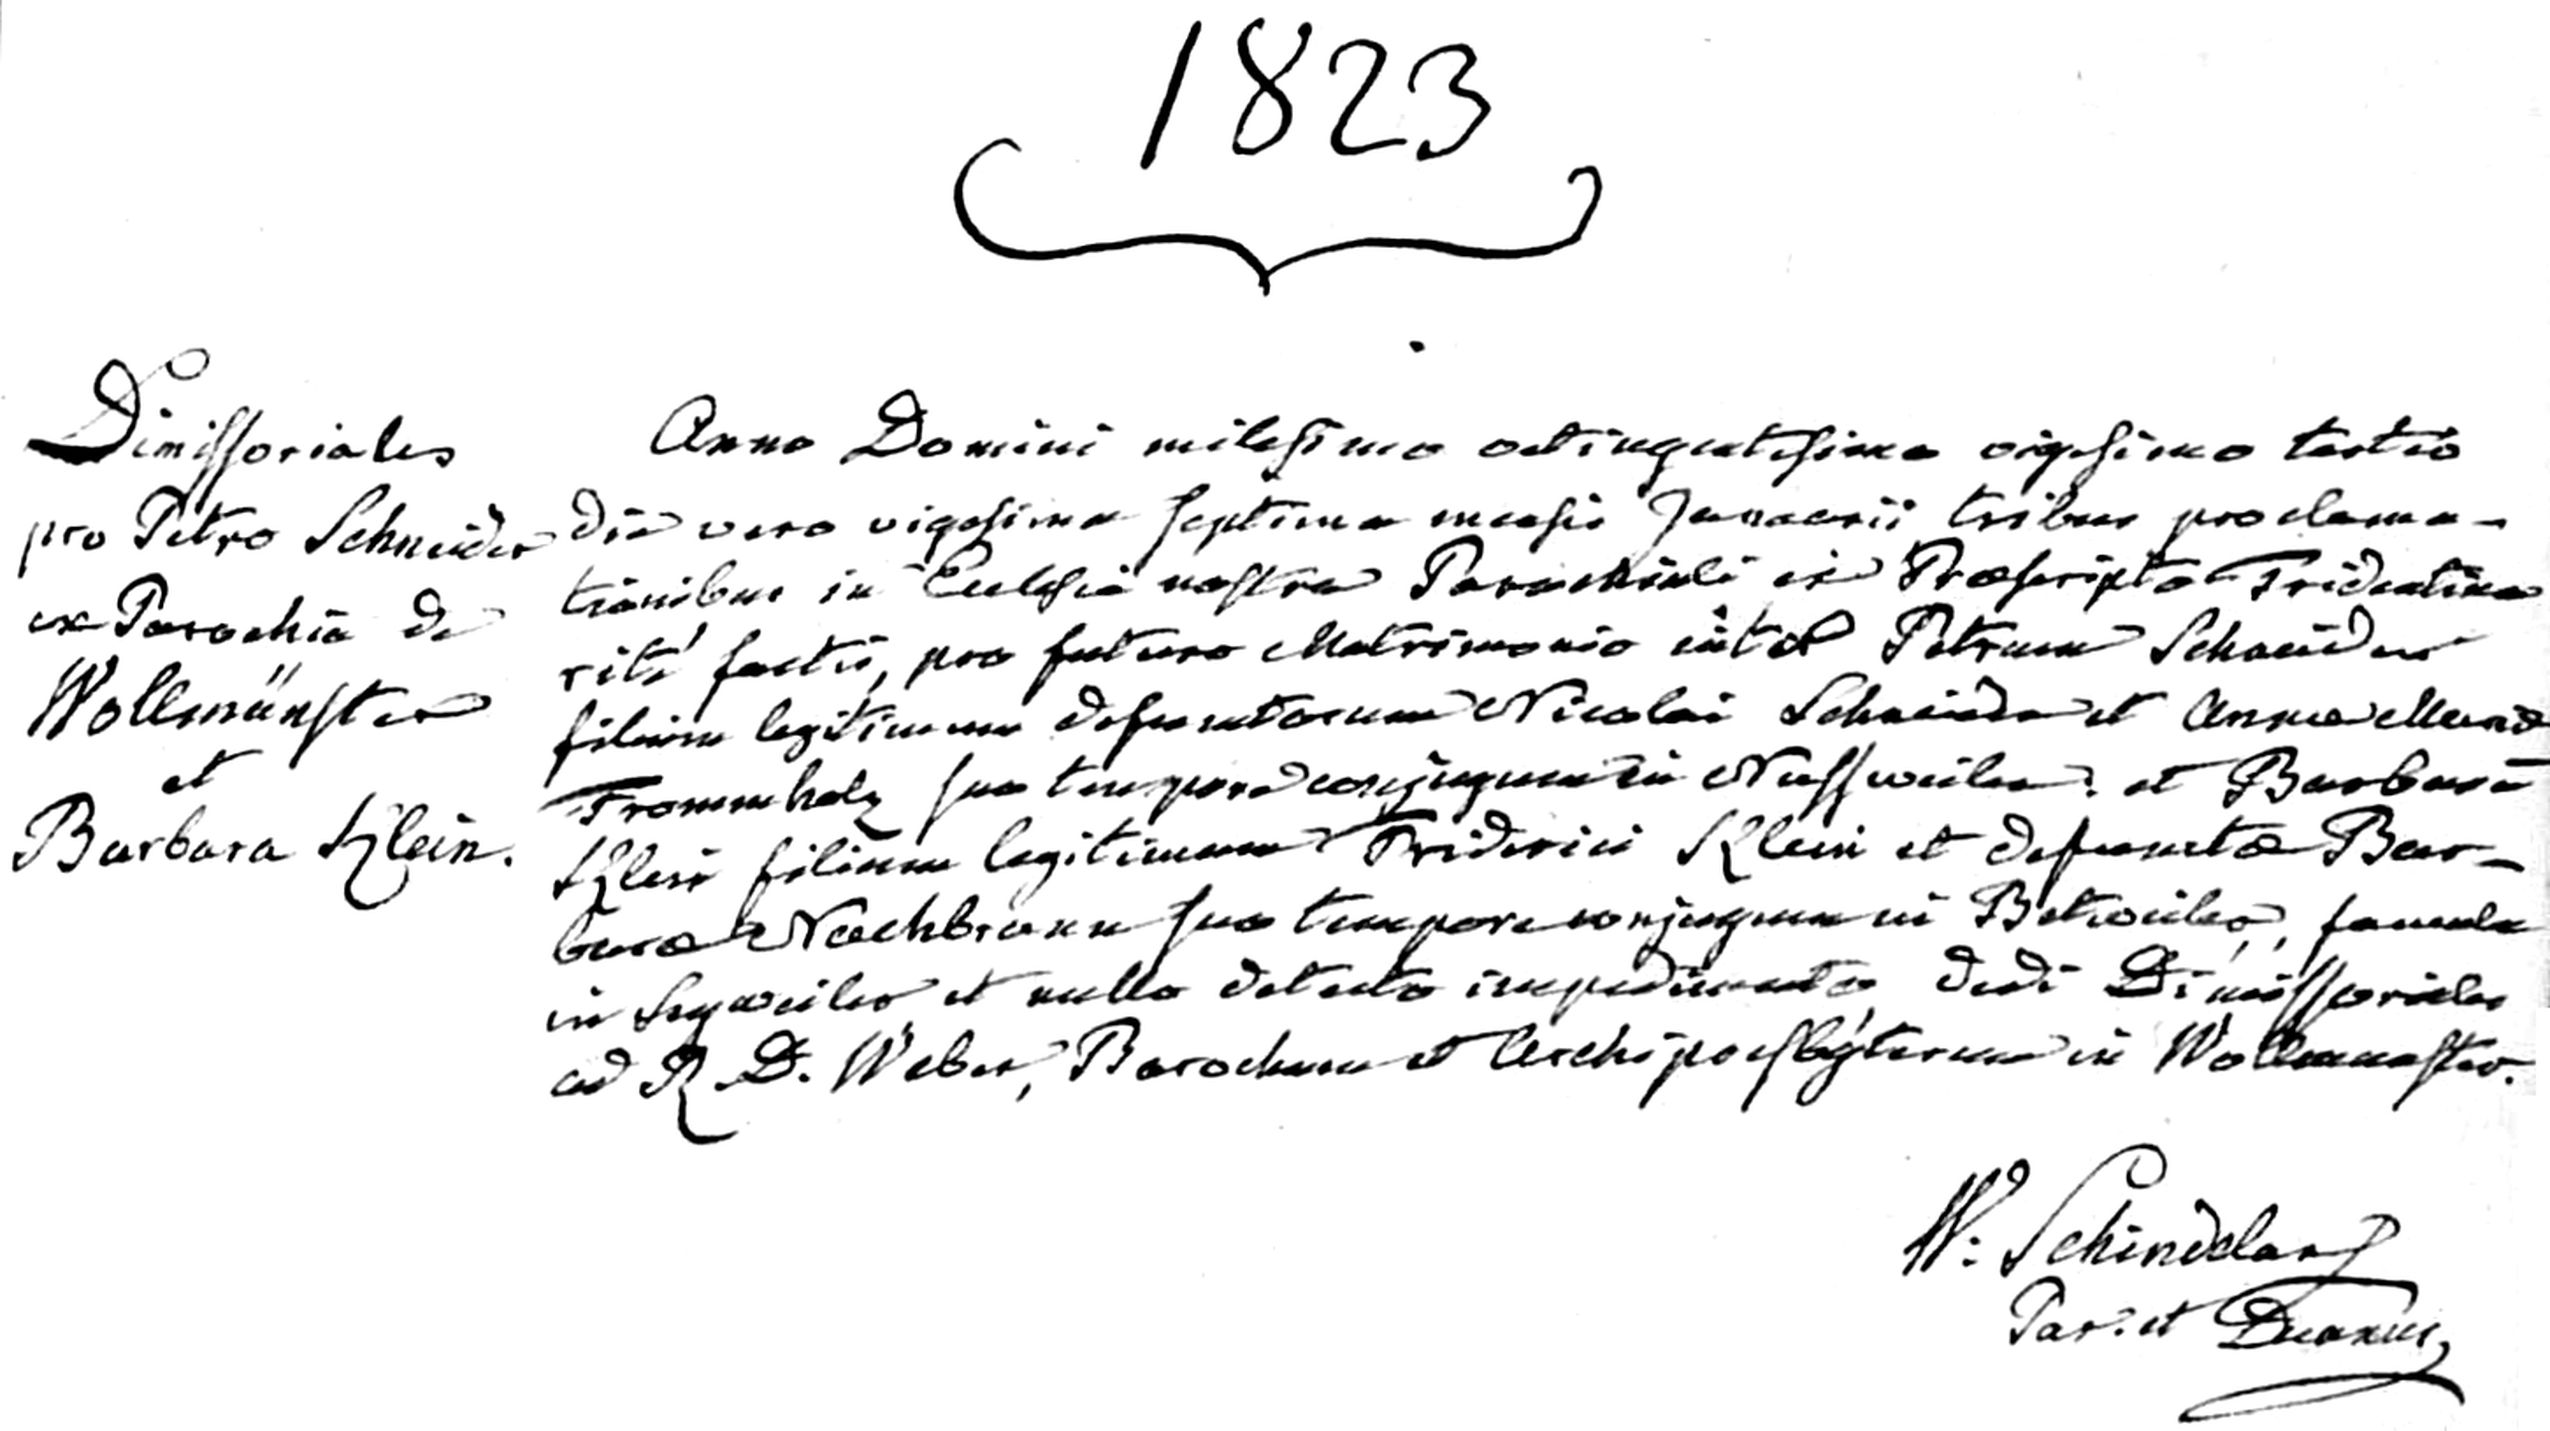 1823
Dimissoriales
pro Petro Schneider
ex Parochia de
Wollmünster
et
Barbara Klein.
Anno Domini milesimo octingentesimo vigesimo tertio
die vero vigesima septima mensis Januarii tribus proclama-
tionibus in Ecclesia nostra Parochiali ex Præscripto Tridentino
rité factis, pro futuro Matrimonio inter Petrum Schneider
filium legitimum defunctorum Nicolai Schneider et Annæ Mariæ
Frommholz suo tempore conjugum in Nussweiler. et Barbara
Klein filiam legitimam Friderici Klein et defunctæ Bar-
baræ Nachbrann suo tempore conjugum in Betweiler, famula
in Seyweiler et nullo detecto impedimento, dedi Dimissoriales
ad R. D. Weber, Parochum et Archipresbÿterum in Wollmunster.
W: Schindelar
Par. et Decanus